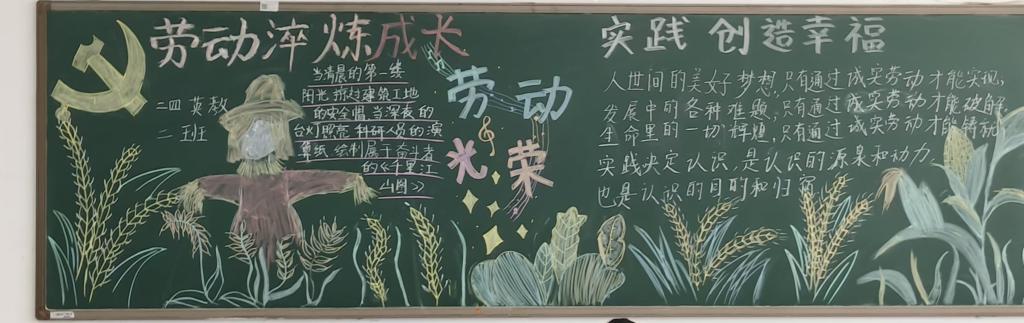 劳动淬炼成长
二四 英教
二班
当清晨的第一缕
阳光掠过建筑工地
的安全帽 当深夜的
台灯照亮科研人员的演
算纸 绘制属于奋斗者
的《千里江
山图》
劳动
光荣
实践创造幸福
人世间的美好梦想,只有通过诚实劳动才能实现,
发展中的各种难题,只有通过诚实劳动才能破解
生命里的一切辉煌,只有通过诚实劳动才能铸就
实践决定认识,是认识的源泉和动力
也是认识的目的和归宿